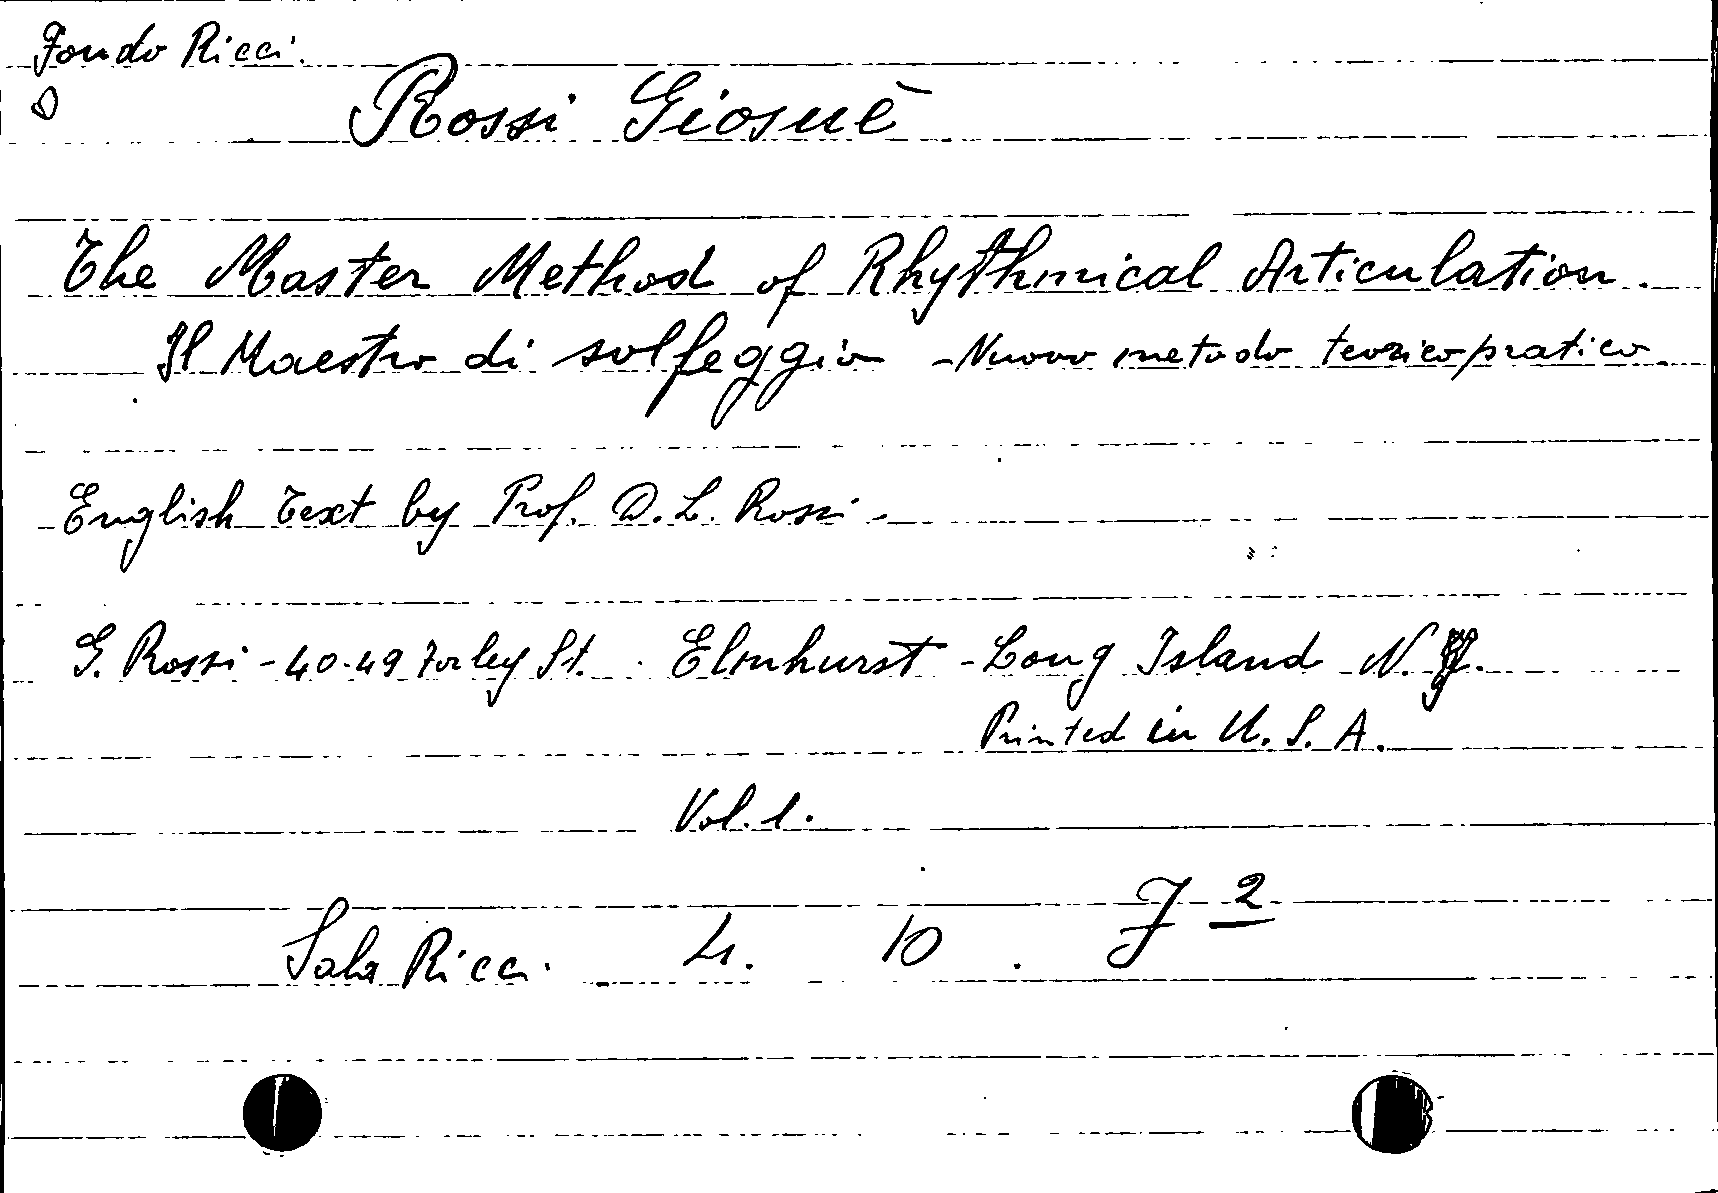 Fondo Ricci.
Rossi Giosuè
The Master Method of Rhythmical Articulation.
Il Maestro di solfeggio - Nuovo metodo teorico pratico.
English Text by Prof. D. L. Rossi.
G. Rossi - 40-49 Forley St. Elmhurst - Long Island N.Y.
Printed in U.S.A.
Vol. 1.
Sala Ricci. 4. 10. J 2